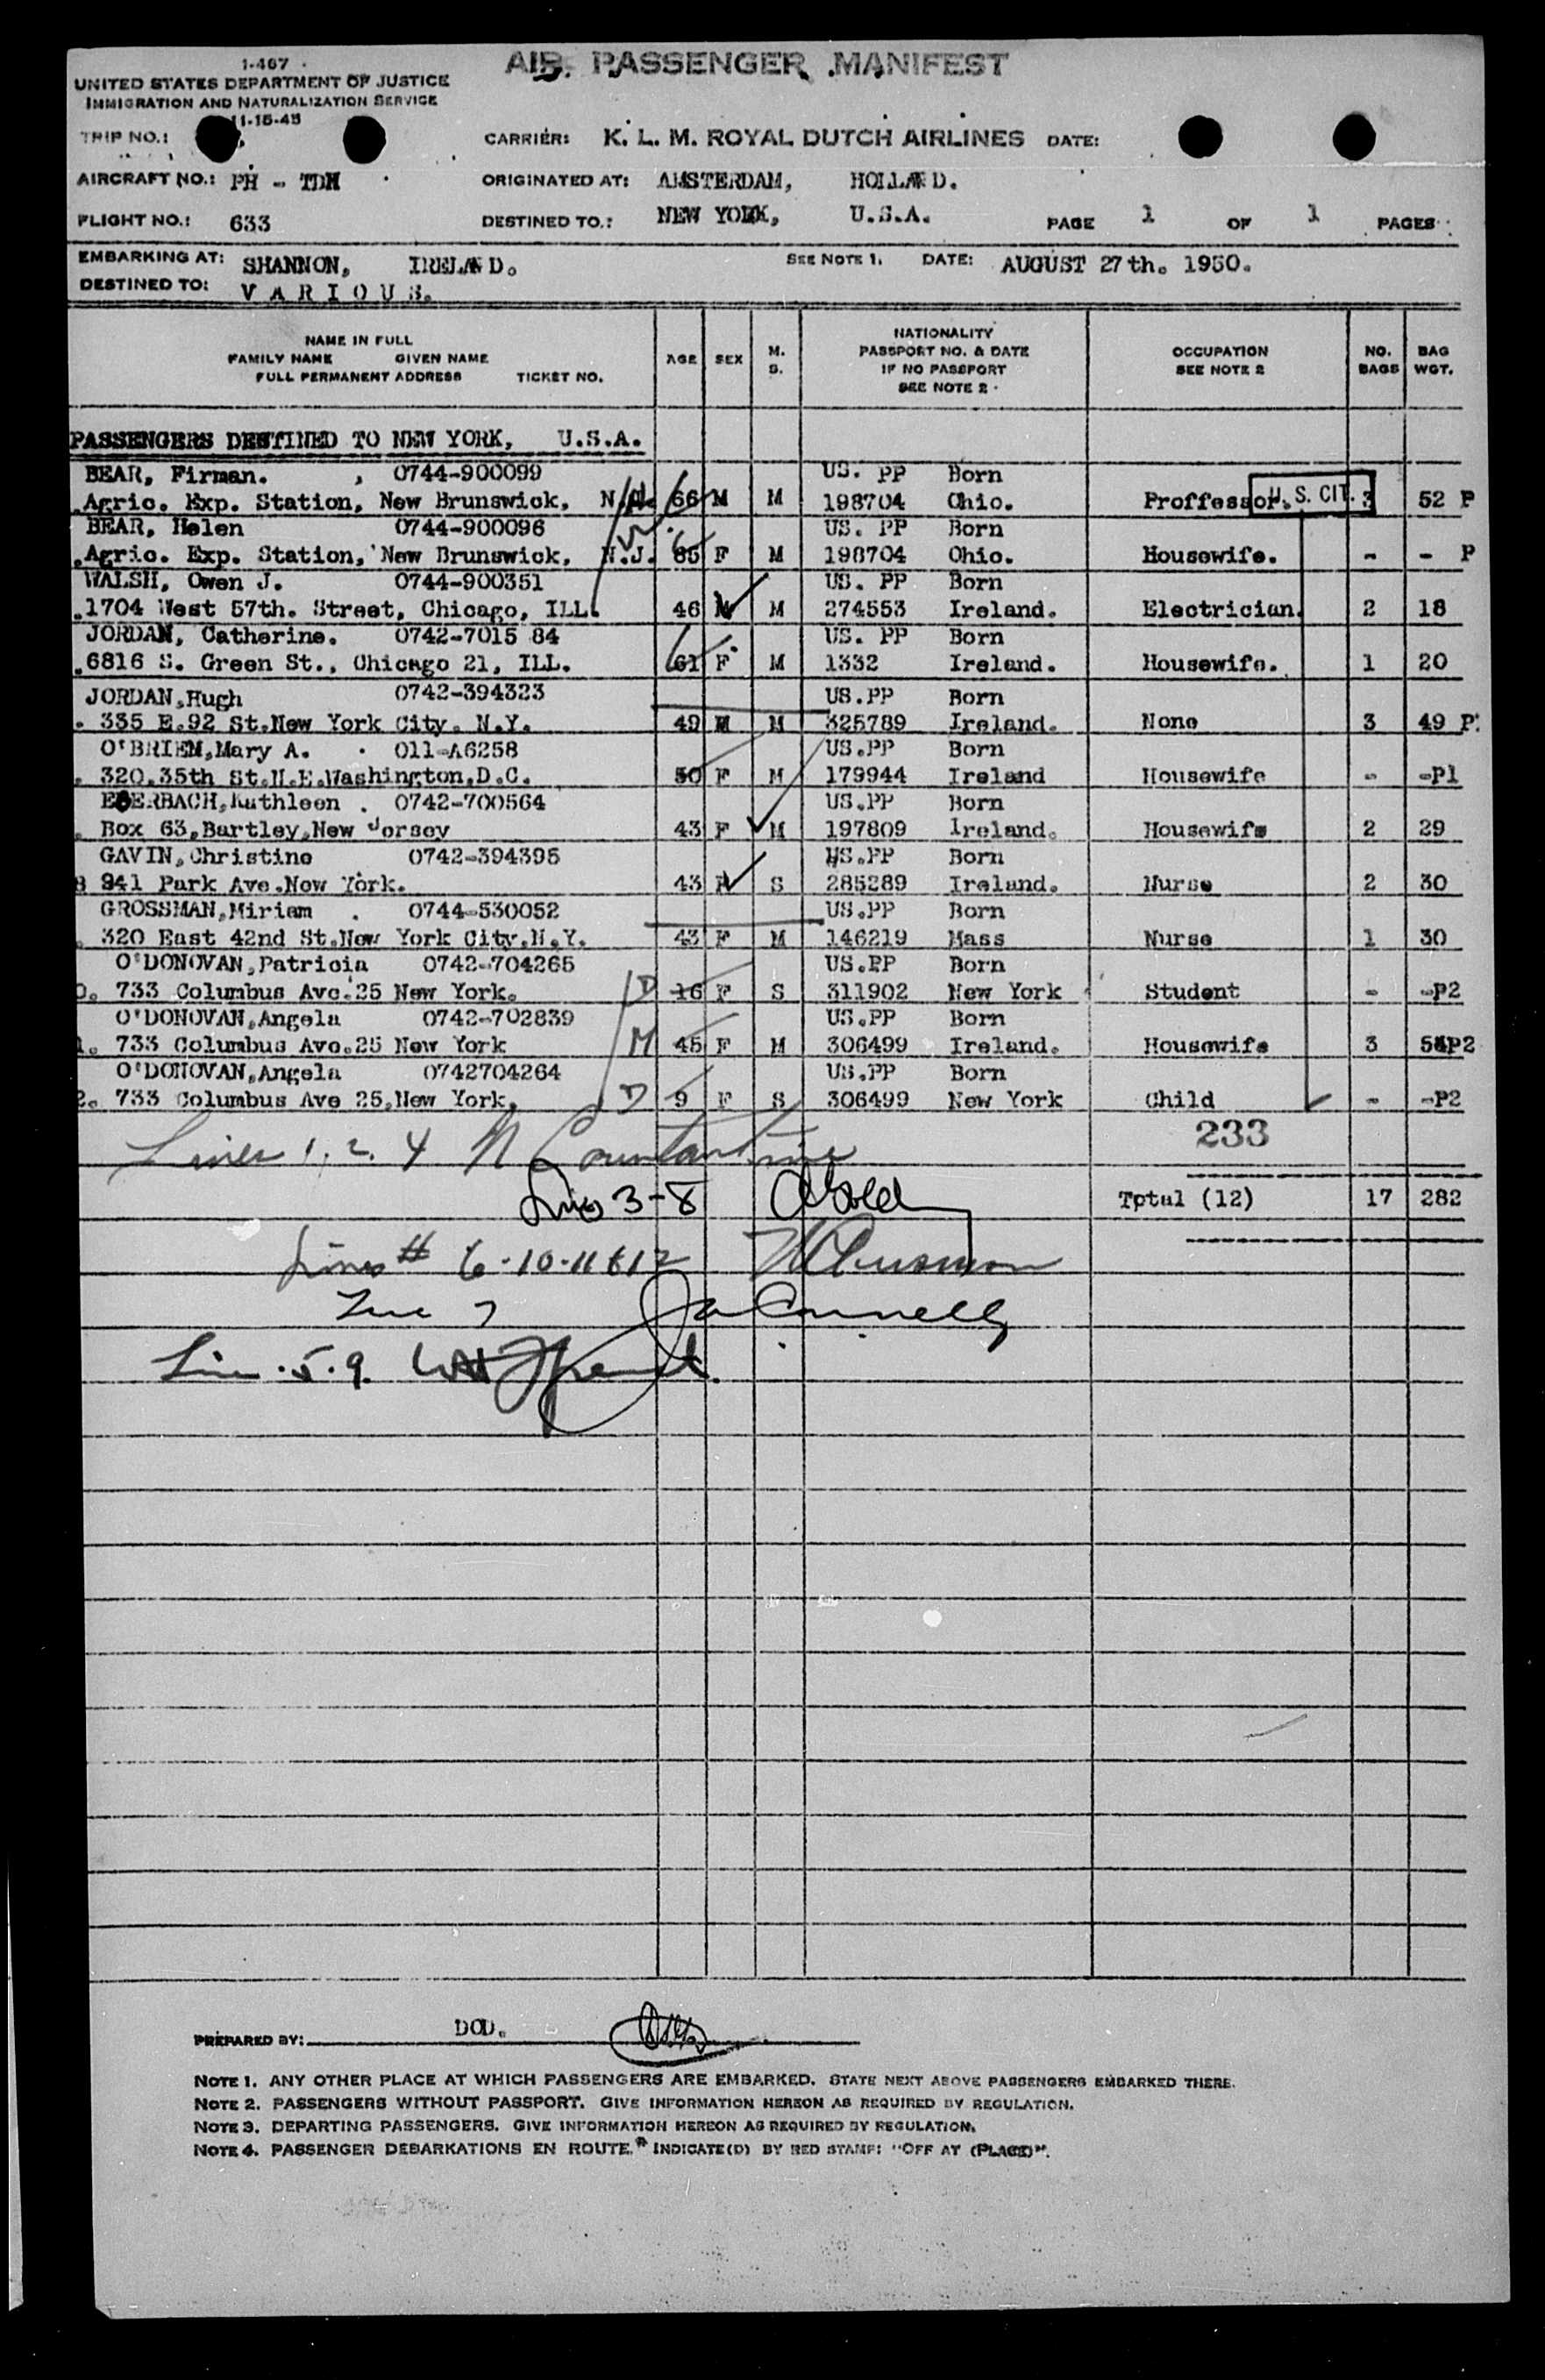 1-467
AIR PASSENGER MANIFEST
UNITED STATES DEPARTMENT OF JUSTICE
IMMIGRATION AND NATURALIZATION SERVICE
11-15-45
TRIP NO.: CARRIER: K. L. M. ROYAL DUTCH AIRLINES DATE:
AIRCRAFT NO.: PH - TDH ORIGINATED AT: AMSTERDAM, HOLLAND.
FLIGHT NO.: 633 DESTINED TO.: NEW YORK, U.S.A. PAGE 1 OF 1 PAGES
EMBARKING AT: SHANNON, IRELAND. SEE NOTE 1. DATE: AUGUST 27th. 1950.
DESTINED TO: V A R I O U S.
NAME IN FULL
FAMILY NAME GIVEN NAME
FULL PERMANENT ADDRESS TICKET NO.
AGE SEX M. S.
NATIONALITY
PASSPORT NO. & DATE
IF NO PASSPORT
SEE NOTE 2
OCCUPATION
SEE NOTE 2
NO. BAGS
BAG WGT.
PASSENGERS DESTINED TO NEW YORK, U.S.A.
BEAR, Firman. , 0744-900099 US. PP Born
Agric. Exp. Station, New Brunswick, N.J. 66 M M 198704 Ohio. Proffessor. U. S. CIT. 3 52 P
BEAR, Helen 0744-900096 US. PP Born
Agric. Exp. Station, New Brunswick, N.J. 65 F M 198704 Ohio. Housewife. - - P
WALSH, Owen J. 0744-900351 US. PP Born
1704 West 57th. Street, Chicago, ILL. 46 M M 274553 Ireland. Electrician. 2 18
JORDAN, Catherine. 0742-7015 84 US. PP Born
6816 S. Green St., Chicago 21, ILL. 61 F M 1332 Ireland. Housewife. 1 20
JORDAN,Hugh 0742-394323 US.PP Born
335 E.92 St.New York City. N.Y. 49 M M 325789 Ireland. None 3 49 P
O'BRIEN,Mary A. 011-A6258 US.PP Born
320.35th St.N.E.Washington.D.C. 50 F M 179944 Ireland Housewife - -P1
EBERBACH,Kathleen . 0742-700564 US.PP Born
Box 63,Bartley,New Jersey 43 F M 197809 Ireland. Housewife 2 29
GAVIN,Christine 0742-394395 US.PP Born
8 941 Park Ave.New York. 43 F S 285289 Ireland. Nurse 2 30
GROSSMAN,Miriam . 0744-530052 US.PP Born
320 East 42nd St.New York City.N.Y. 43 F M 146219 Mass Nurse 1 30
O'DONOVAN,Patricia 0742-704265 US.PP Born
0. 733 Columbus Ave.25 New York. D 16 F S 311902 New York Student - -P2
O'DONOVAN,Angela 0742-702839 US.PP Born
1. 733 Columbus Ave.25 New York M 45 F M 306499 Ireland. Housewife 3 54P2
O'DONOVAN,Angela 0742704264 US.PP Born
2. 733 Columbus Ave 25,New York. D 9 F S 306499 New York Child - -P2
233
Lines 1, 2. 4
Lines 3-8
Total (12) 17 282
Lines # 6-10-11 & 12
Line 7
Line 5.9.
PREPARED BY: DOD.
NOTE 1. ANY OTHER PLACE AT WHICH PASSENGERS ARE EMBARKED. STATE NEXT ABOVE PASSENGERS EMBARKED THERE.
NOTE 2. PASSENGERS WITHOUT PASSPORT. GIVE INFORMATION HEREON AS REQUIRED BY REGULATION.
NOTE 3. DEPARTING PASSENGERS. GIVE INFORMATION HEREON AS REQUIRED BY REGULATION.
NOTE 4. PASSENGER DEBARKATIONS EN ROUTE. INDICATE(D) BY RED STAMP: "OFF AT (PLACE)".